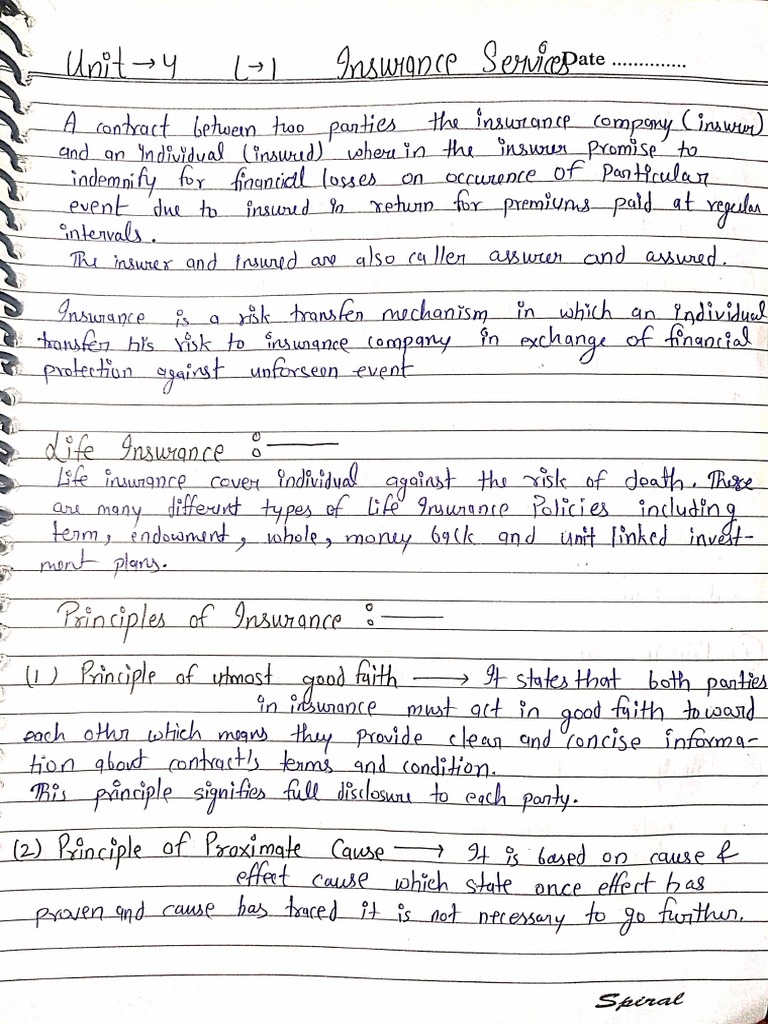 Unit → 4 L → 1 Insurance Services Date ..............
A contract between two parties the insurance company (insurer)
and an individual (insured) wherein the insurer promise to
indemnify for financial losses on occurence of Particular
event due to insured in return for premiums paid at regular
intervals.
The insurer and insured are also caller assurer and assured.
Insurance is a risk transfer mechanism in which an individual
transfer his risk to insurance company in exchange of financial
protection against unforseen event
Life Insurance :——
Life insurance cover individual against the risk of death. There
are many different types of Life Insurance Policies including
term, endowment, whole, money back and unit linked invest-
ment plans.
Principles of Insurance :——
(1) Principle of utmost good faith ⟶ It states that both parties
in insurance must act in good faith toward
each other which means they provide clear and concise informa-
tion about contract's terms and condition.
This principle signifies full disclosure to each party.
(2) Principle of Proximate Cause ⟶ It is based on cause &
effect cause which state once effect has
proven and cause has traced it is not necessary to go further.
Spiral